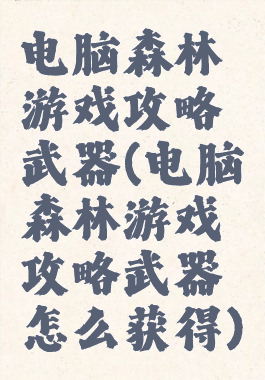 电脑森林
游戏攻略
武器(电脑
森林游戏
攻略武器
怎么获得)